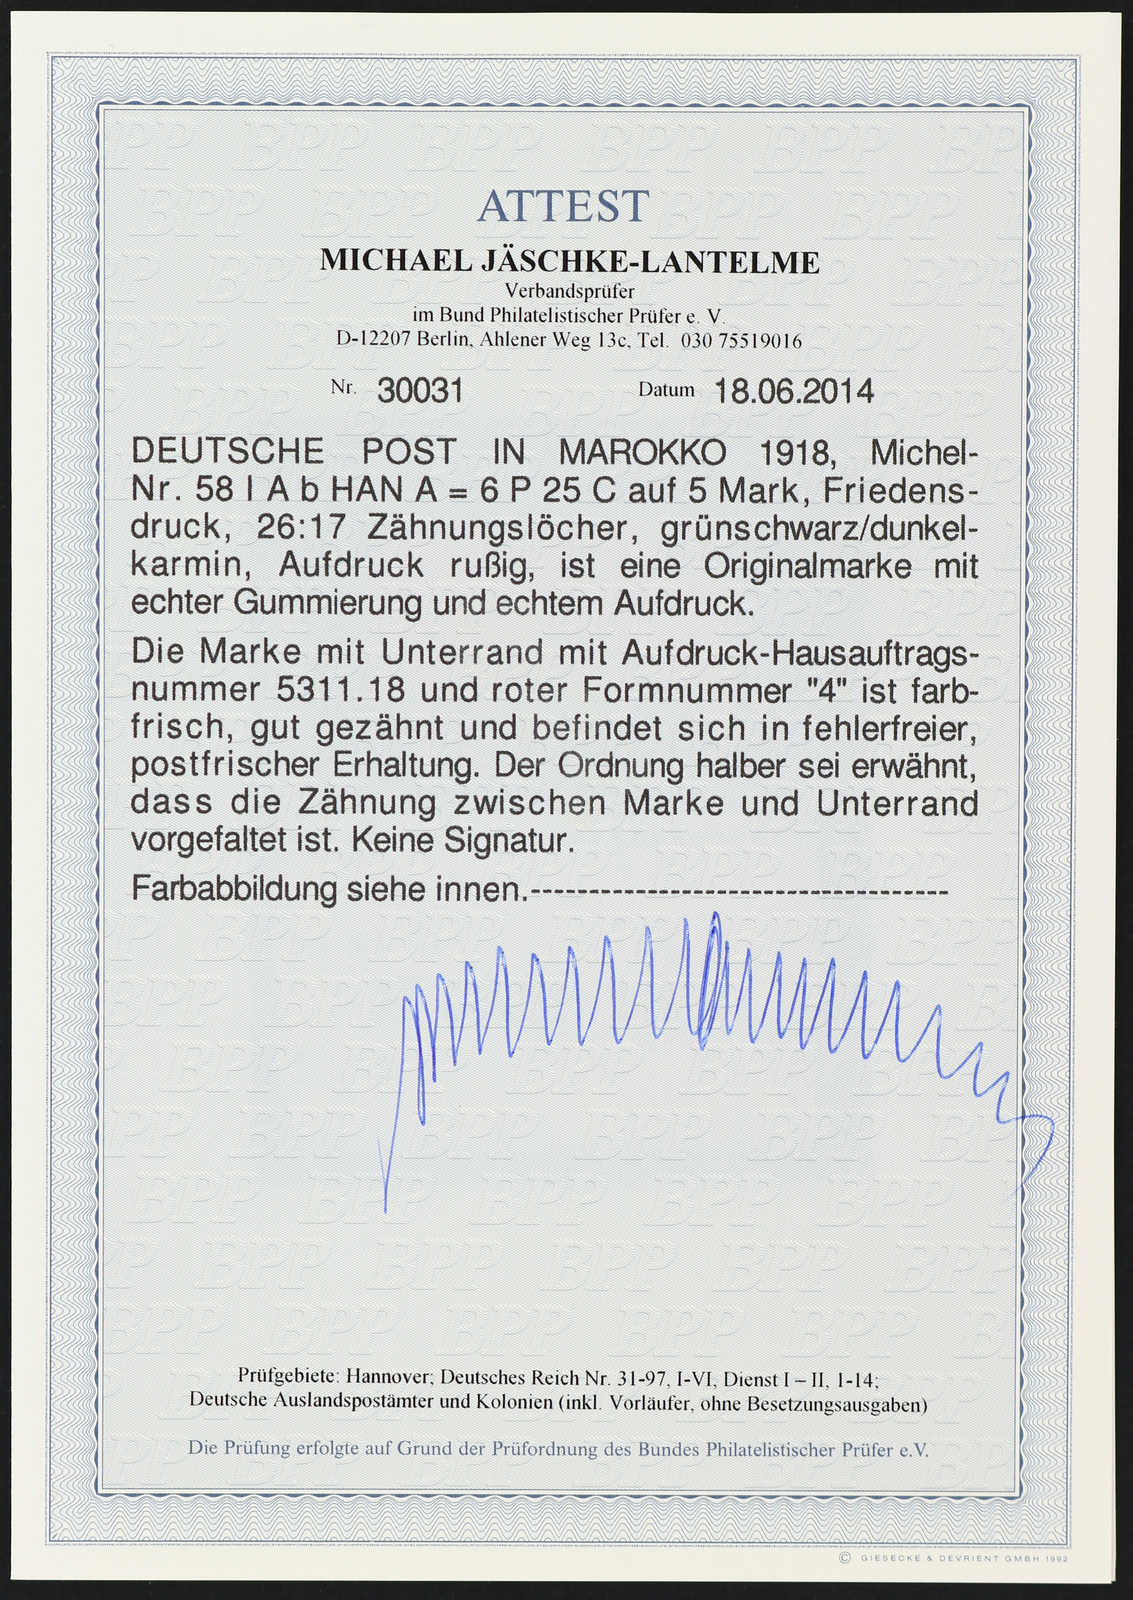 ATTEST
MICHAEL JÄSCHKE-LANTELME
Verbandsprüfer
im Bund Philatelistischer Prüfer e. V.
D-12207 Berlin, Ahlener Weg 13c, Tel. 030 75519016
Nr. 30031 Datum 18.06.2014
DEUTSCHE POST IN MAROKKO 1918, Michel-
Nr. 58 I A b HAN A = 6 P 25 C auf 5 Mark, Friedens-
druck, 26:17 Zähnungslöcher, grünschwarz/dunkel-
karmin, Aufdruck rußig, ist eine Originalmarke mit
echter Gummierung und echtem Aufdruck.
Die Marke mit Unterrand mit Aufdruck-Hausauftrags-
nummer 5311.18 und roter Formnummer "4" ist farb-
frisch, gut gezähnt und befindet sich in fehlerfreier,
postfrischer Erhaltung. Der Ordnung halber sei erwähnt,
dass die Zähnung zwischen Marke und Unterrand
vorgefaltet ist. Keine Signatur.
Farbabbildung siehe innen.------------------------------------
Prüfgebiete: Hannover; Deutsches Reich Nr. 31-97, I-VI, Dienst I – II, 1-14;
Deutsche Auslandspostämter und Kolonien (inkl. Vorläufer, ohne Besetzungsausgaben)
Die Prüfung erfolgte auf Grund der Prüfordnung des Bundes Philatelistischer Prüfer e.V.
© GIESECKE & DEVRIENT GMBH 1992